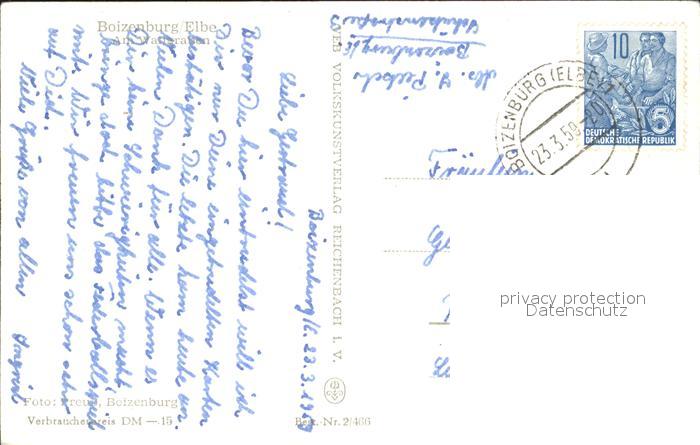 Boizenburg/Elbe
Am Wallgraben
Boizenburg/E. 23.3.1959
Liebe Gertraud!
Bevor Du hier eintrudelst will ich
Dir nur Deine eingetroffenen Karten
bestätigen. Die letzte kam heute an.
Vielen Dank für alle. Wenn es
Dir keine Schwierigkeiten macht,
bringe doch bitte das Federballspiel
mit. Wir freuen uns schon sehr
auf Dich.
Viele Grüße von allen
Foto: Preuß, Boizenburg
Verbraucherpreis DM —.15
VEB VOLKSKUNSTVERLAG REICHENBACH i. V.
Best.-Nr. 2/466
Abs.
Boizenburg/E.
10
5
DEUTSCHE
DEMOKRATISCHE REPUBLIK
BOIZENBURG (ELBE)
23.3.59.-20
privacy protection
Datenschutz